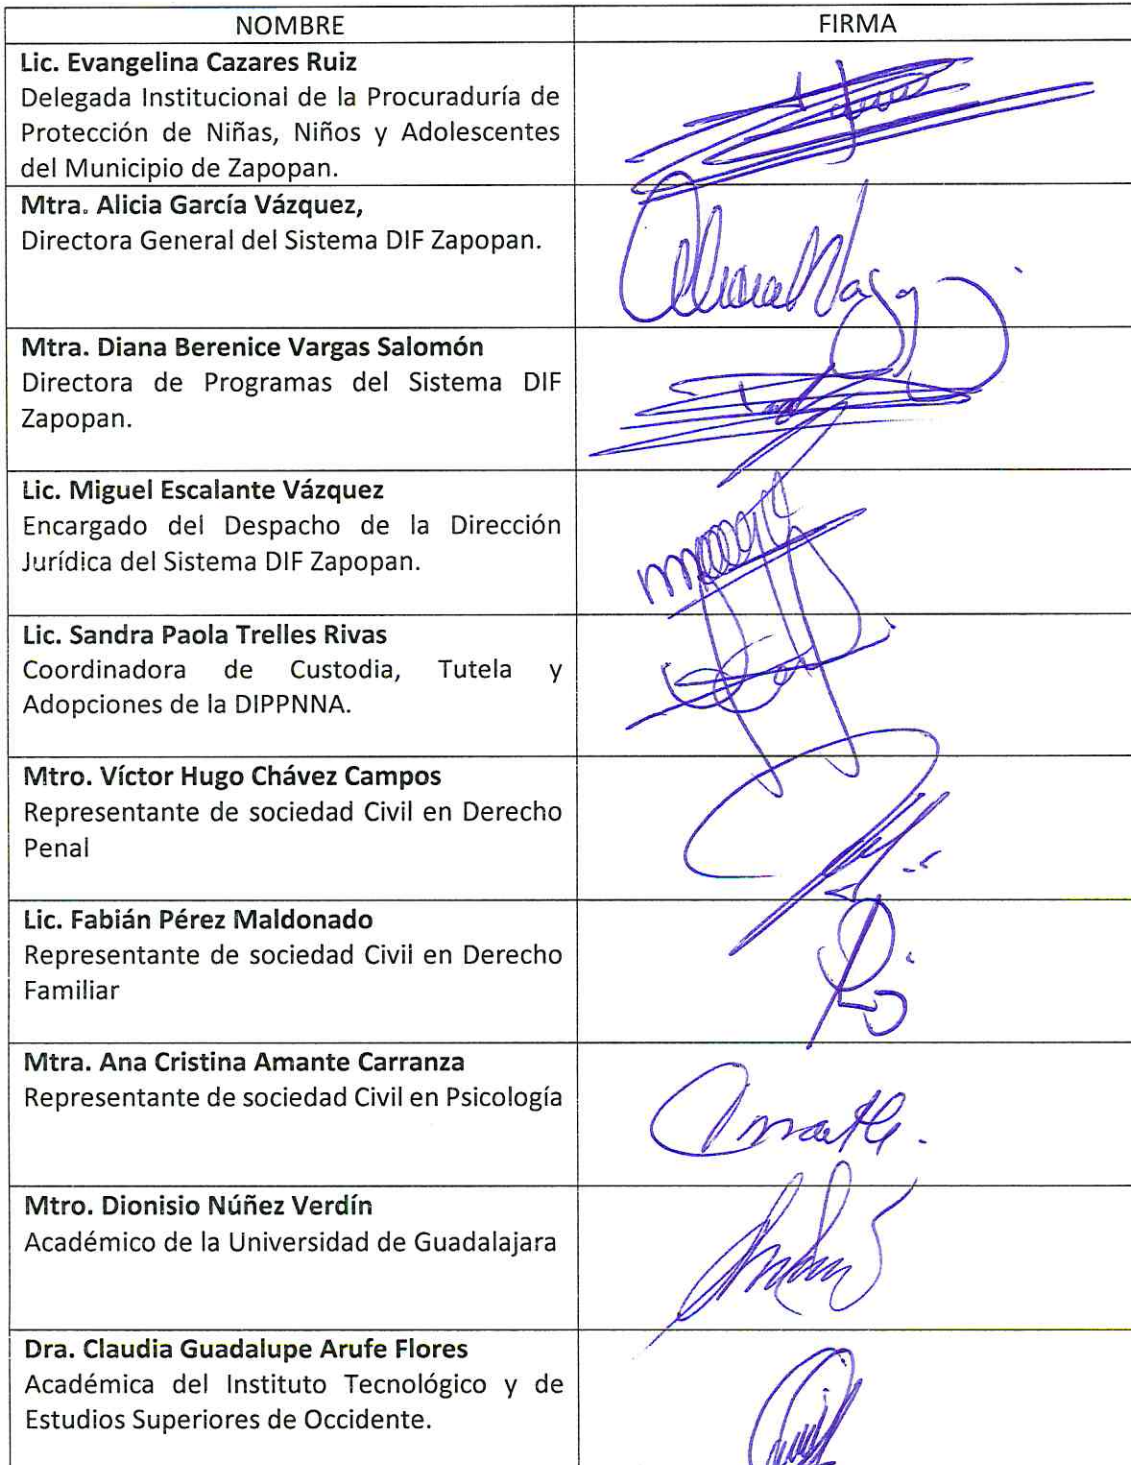 NOMBRE
FIRMA
Lic. Evangelina Cazares Ruiz
Delegada Institucional de la Procuraduría de
Protección de Niñas, Niños y Adolescentes
del Municipio de Zapopan.
Mtra. Alicia García Vázquez,
Directora General del Sistema DIF Zapopan.
Mtra. Diana Berenice Vargas Salomón
Directora de Programas del Sistema DIF
Zapopan.
Lic. Miguel Escalante Vázquez
Encargado del Despacho de la Dirección
Jurídica del Sistema DIF Zapopan.
Lic. Sandra Paola Trelles Rivas
Coordinadora de Custodia, Tutela y
Adopciones de la DIPPNNA.
Mtro. Víctor Hugo Chávez Campos
Representante de sociedad Civil en Derecho
Penal
Lic. Fabián Pérez Maldonado
Representante de sociedad Civil en Derecho
Familiar
Mtra. Ana Cristina Amante Carranza
Representante de sociedad Civil en Psicología
Mtro. Dionisio Núñez Verdín
Académico de la Universidad de Guadalajara
Dra. Claudia Guadalupe Arufe Flores
Académica del Instituto Tecnológico y de
Estudios Superiores de Occidente.